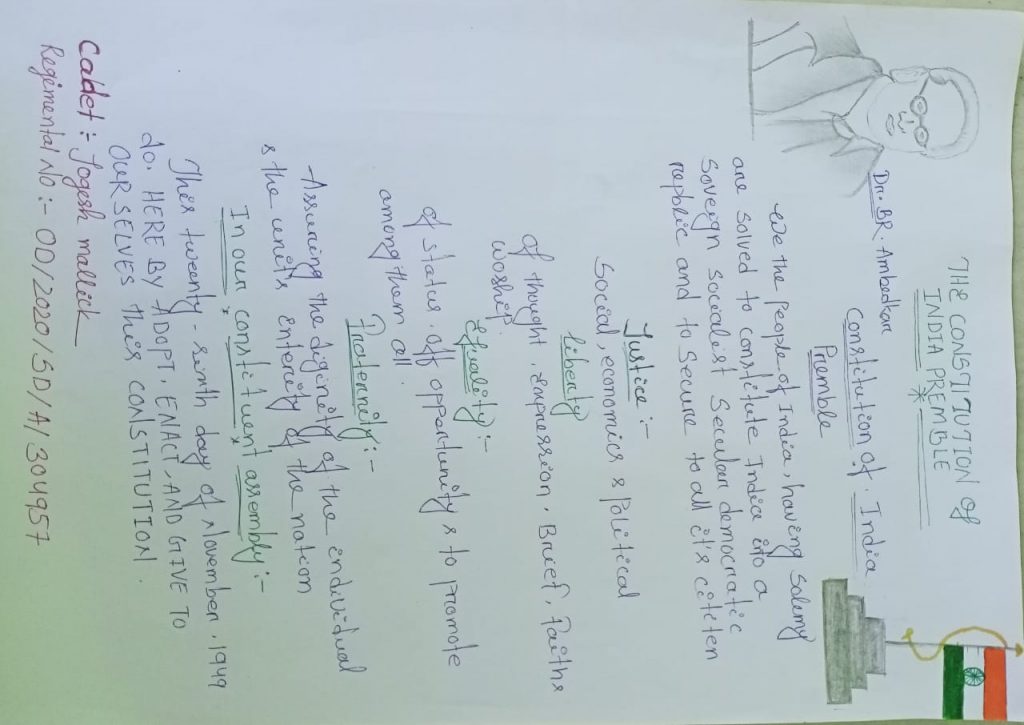 THE CONSTITUTION of
INDIA PREMBLE
Dr. BR. Ambedkar
Constitution of. India
Premble
We the people of India, having Solemy
are Solved to constitute India into a
Soveign Socialist Secular democratic
replric and to Secure to all it's citeten
Justice:-
Social, economics & Political
liberty
Of thought, Expression, Brief, Faiths
woship.
Equality:-
Of status, off opportunity & to promote
among them all.
Fraternity:-
Assuring the diginety of the individual
& the units enterity of the nation
In our constituent assembly:-
This tweenty-sinth day of November, 1949
do. HERE BY ADOPT, ENACT, AND GIVE TO
OUR SELVES this CONSTITUTION.
Cadet:- Jogesh mallick
Regimental No:- OD/2020/SD/A/304957